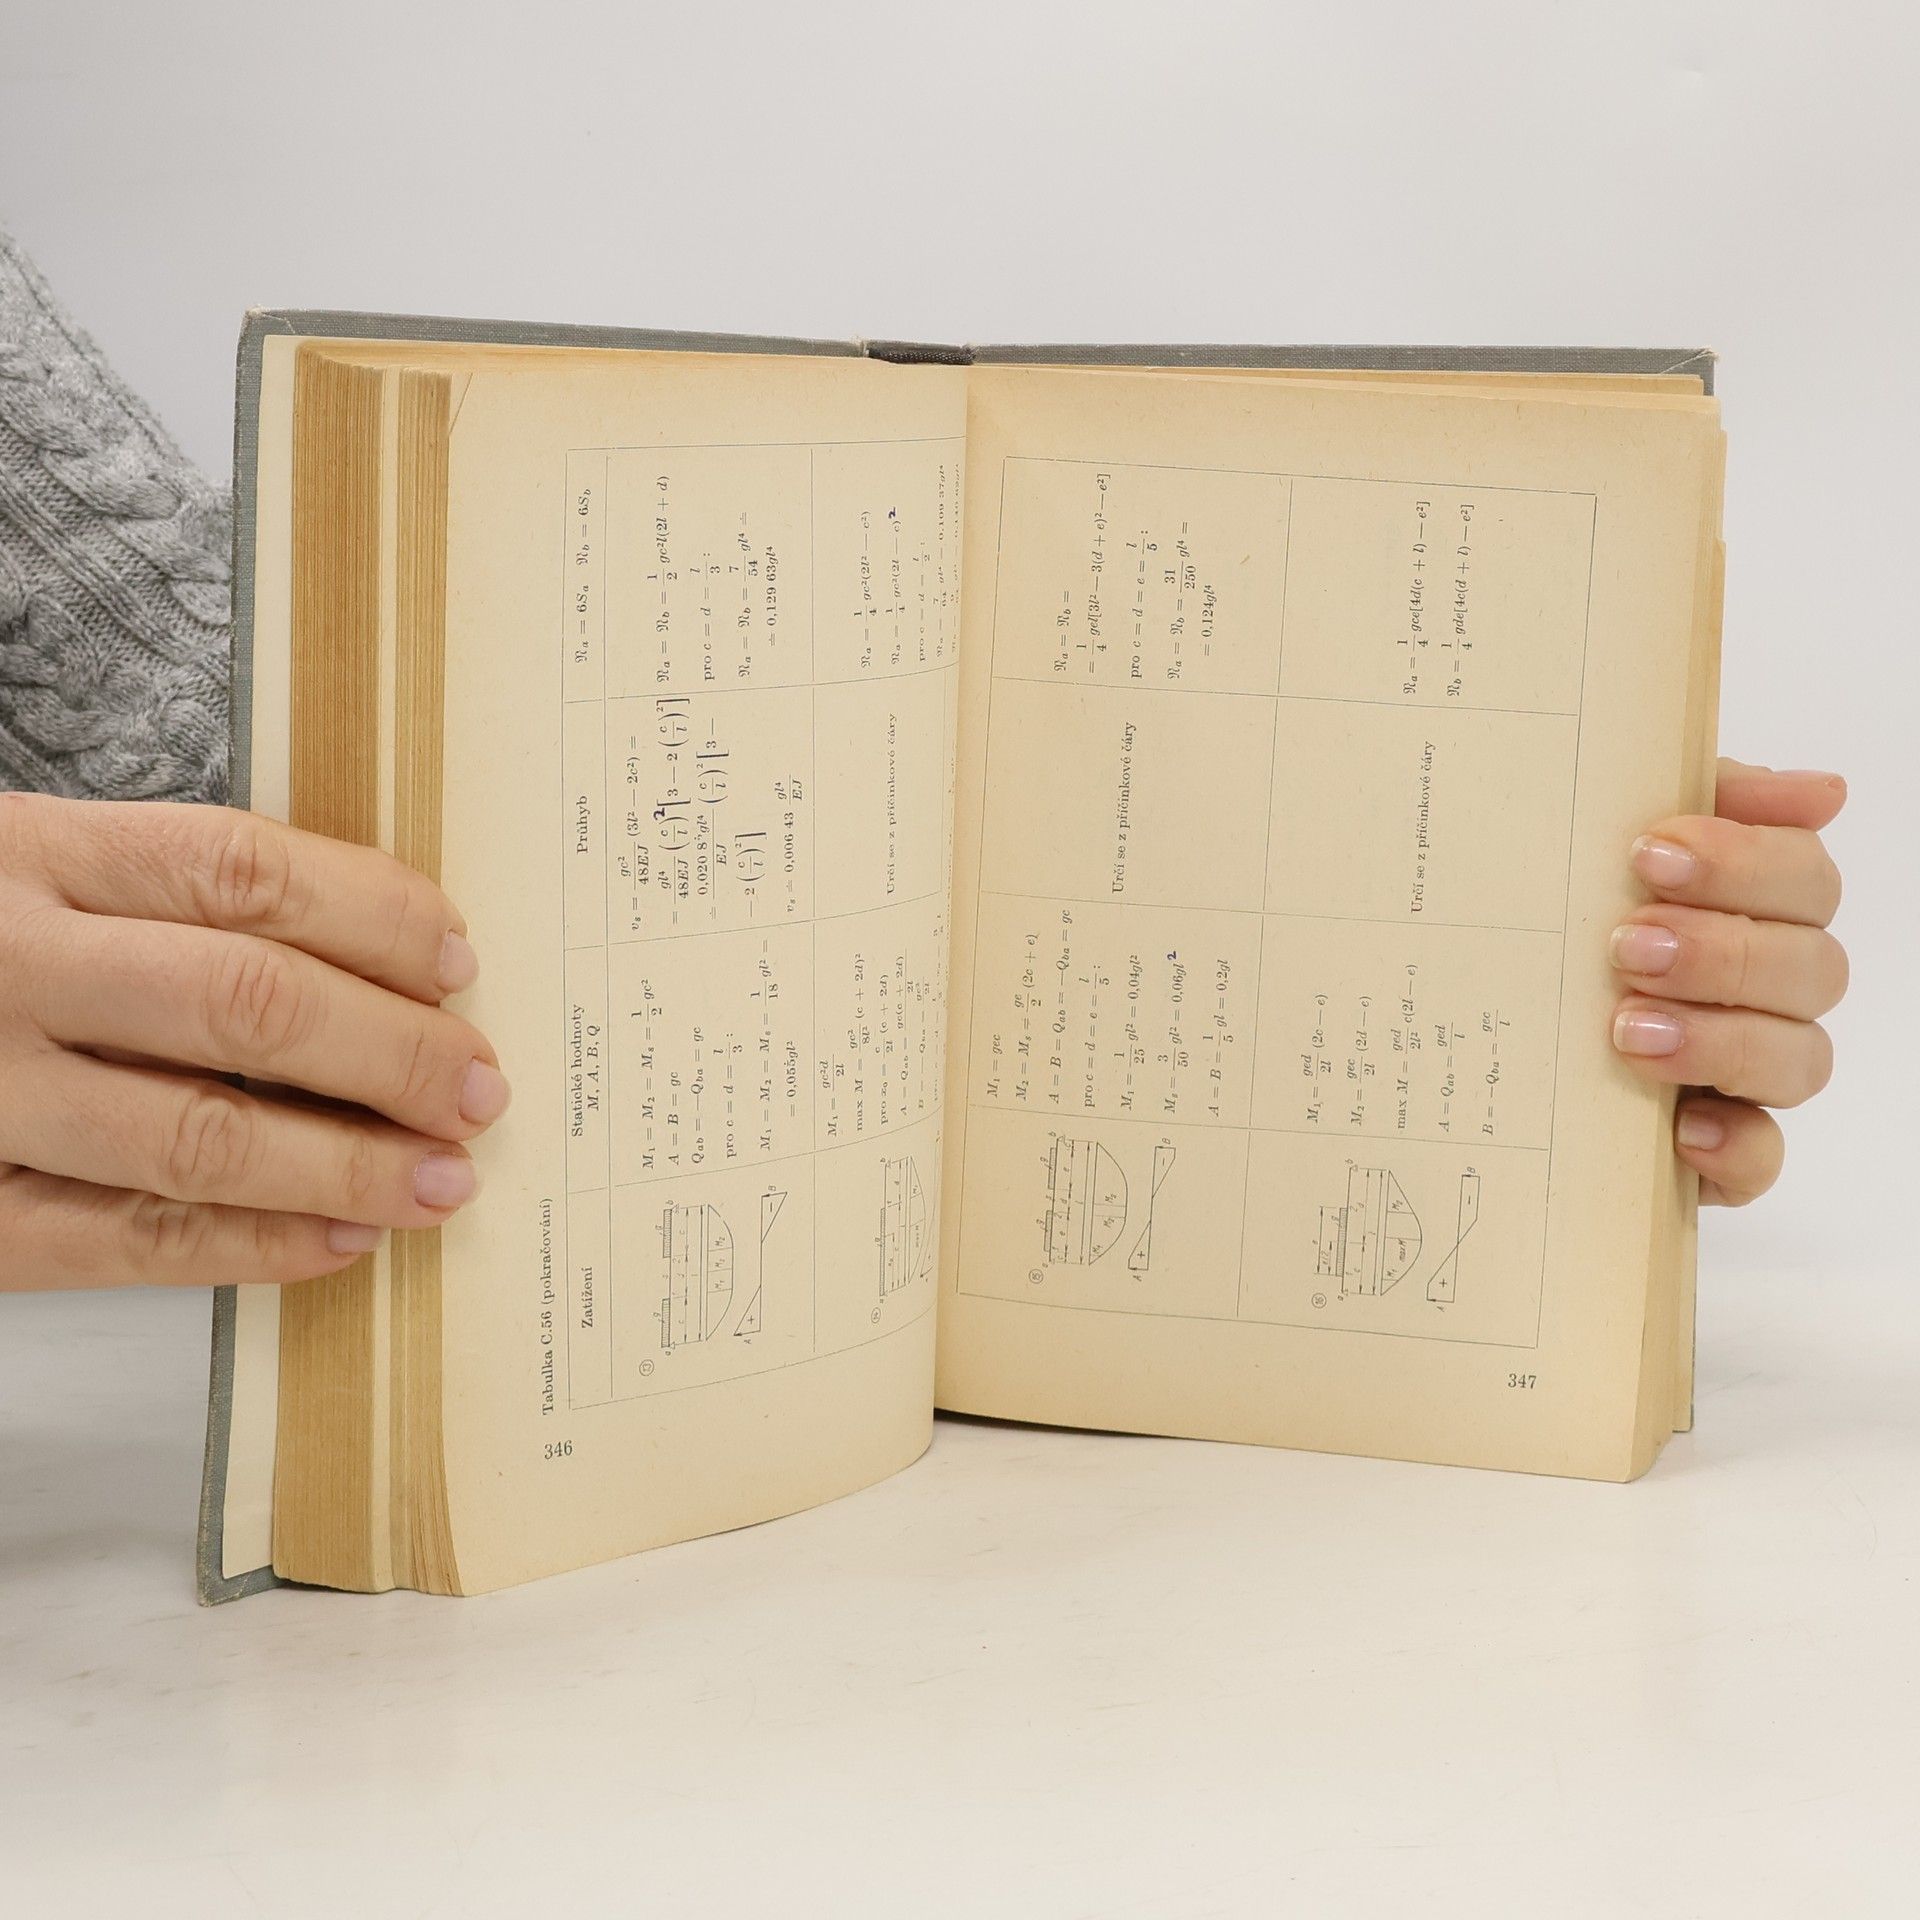 346
Tabulka C.56 (pokračování)
Zatížení
Statické hodnoty
M, A, B, Q
Průhyb
𝔑a = 6Sa 𝔑b = 6Sb
13
M1 = M2 = Ms = 1/2 gc²
A = B = gc
Qab = —Qba = gc
pro c = d = l/3 :
M1 = M2 = Ms = 1/18 gl² =
= 0,055gl²
vs = gc²/48EJ (3l² — 2c²) =
= gl⁴/48EJ (c/l)² [3 — 2 (c/l)²]
≐ 0,020 8 gl⁴/EJ (c/l)² [3 —
— 2 (c/l)²]
vs ≐ 0,006 43 gl⁴/EJ
𝔑a = 𝔑b = 1/2 gc²l(2l + d)
pro c = d = l/3 :
𝔑a = 𝔑b = 7/54 gl⁴ ≐
≐ 0,129 63gl⁴
14
M1 = gc²d/2l
max M = gc²/8l² (c + 2d)²
pro xa = c/2l (c + 2d)
A = Qab = gc(c + 2d)/2l
B = —Qba = gc²/2l
Určí se z příčinkové čáry
𝔑a = 1/4 gc²(2l² — c²)
𝔑a = 1/4 gc²(2l — c)²
pro c = d = l/2 :
15
M1 = gec
M2 = Ms = ge/2 (2c + e)
A = B = Qab = —Qba = gc
pro c = d = e = l/5 :
M1 = 1/25 gl² = 0,04gl²
Ms = 3/50 gl² = 0,06gl²
A = B = 1/5 gl = 0,2gl
Určí se z příčinkové čáry
𝔑a = 𝔑b =
= 1/4 gel[3l² — 3(d + e)² — e²]
pro c = d = e = l/5 :
𝔑a = 𝔑b = 31/250 gl⁴ =
= 0,124gl⁴
16
M1 = ged/2l (2c — e)
M2 = gec/2l (2d — e)
max M = ged/2l² c(2l — e)
A = Qab = ged/l
B = —Qba = gec/l
Určí se z příčinkové čáry
𝔑a = 1/4 gce[4d(c + l) — e²]
𝔑b = 1/4 gde[4c(d + l) — e²]
347